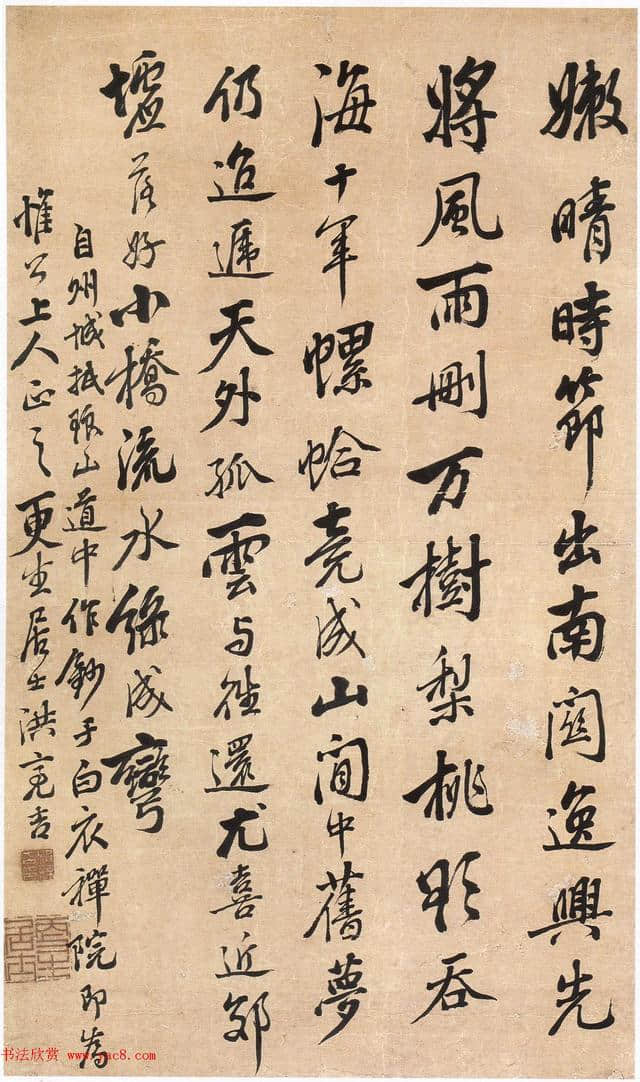 嫩晴時節出南關逸興先
將風雨刪万樹梨桃形吞
海十年螺蛤竟成山閒中舊夢
仍迢遞天外孤雲与往還尤喜近郊
墟落好小橋流水綠成彎
自州城抵狼山道中作鈔于白衣禪院即為
惟公上人正之更生居士洪亮吉
书法欣赏 www.yac8.com